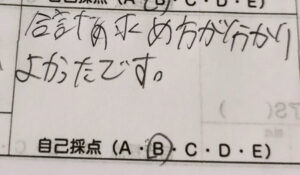 合計の求め方が分かり
よかったです。
自己採点 (A・B・C・D・E)